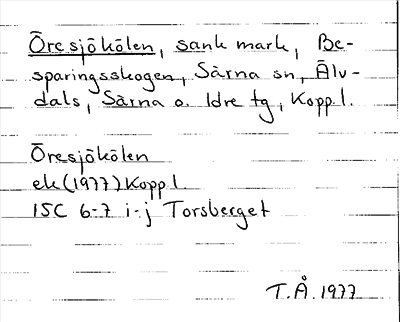 Öresjökölen, sank mark, Be-
sparingsskogen, Särna sn, Älv-
dals, Särna o. Idre tg, Kopp.l.
Öresjökölen
ek (1977) Kopp.l.
15C 6-7 i-j Torsberget
T.Å. 1977